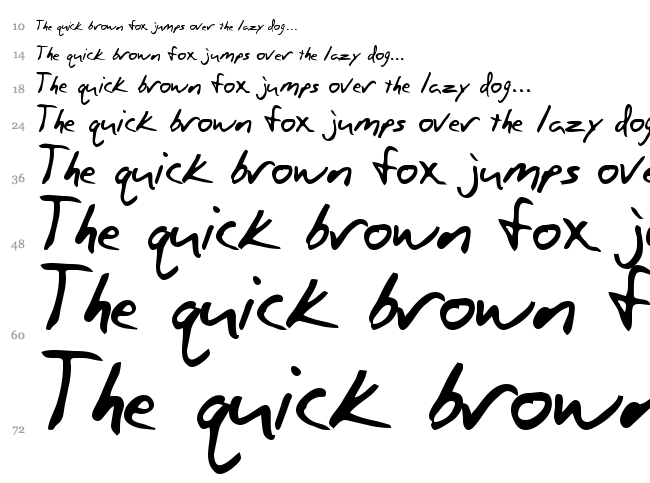 10 The quick brown fox jumps over the lazy dog...
14 The quick brown fox jumps over the lazy dog...
18 The quick brown fox jumps over the lazy dog...
24 The quick brown fox jumps over the lazy dog
36 The quick brown fox jumps ove
48 The quick brown fox j
60 The quick brown f
72 The quick brown